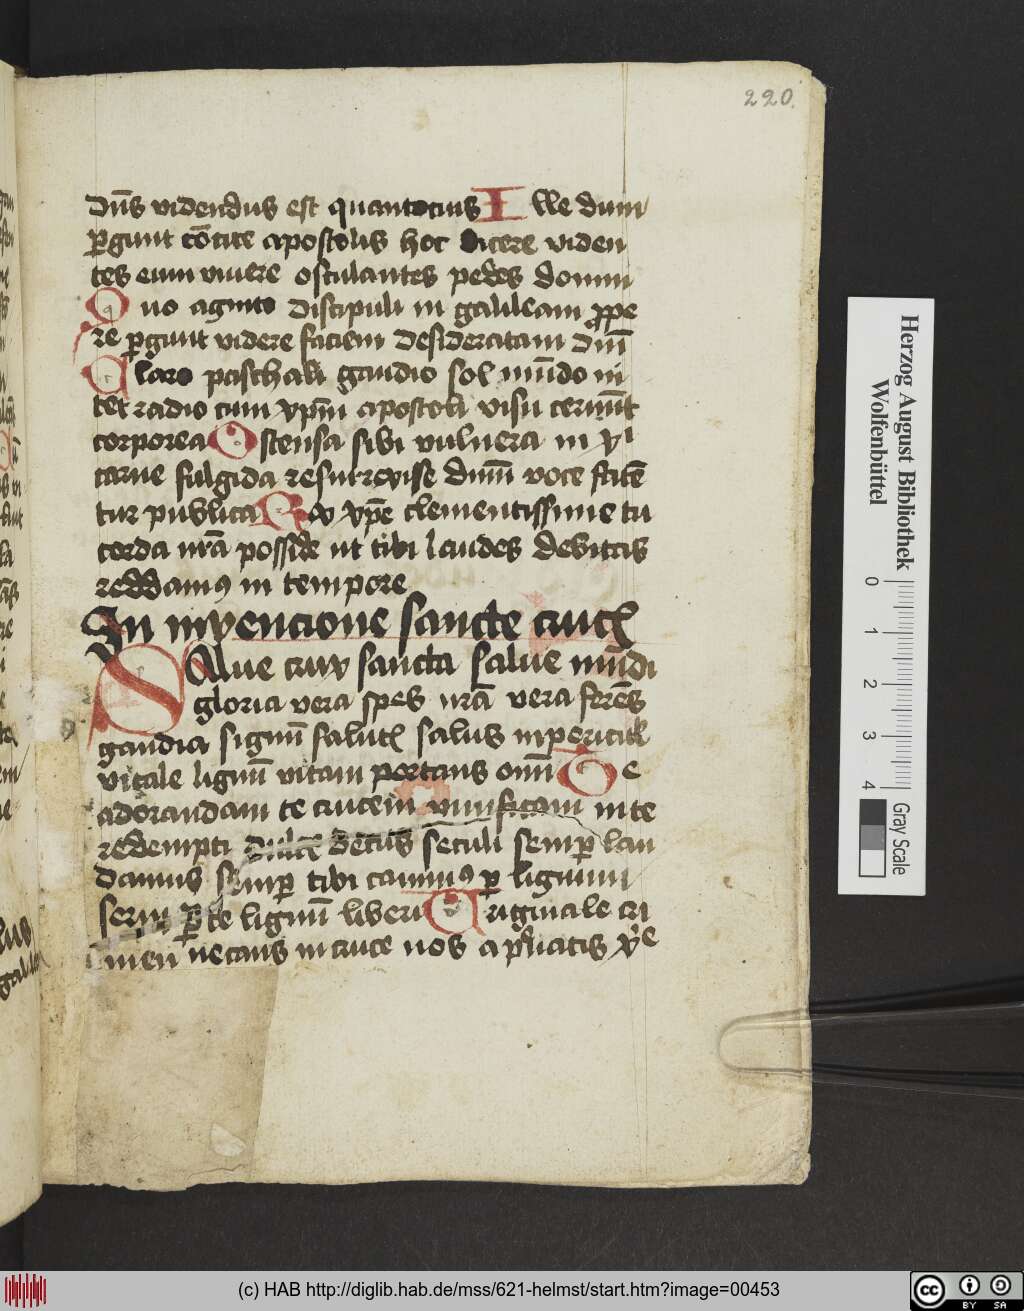 220.
dn̄s videndus est quantocius Ille dum
ꝑgunt cōcite apostolis hoc dicere viden
tes eum vivere osculantes pedes domini
Quo agnito discipuli in galileam ꝓpe
re ꝑgunt videre faciem desideratam dn̄i
Claro paschali gaudio sol mūdo ni
tet radio cum xp̄m apostoli visu cernūt
corporea Ostensa sibi vulnera in xp̄i
carne fulgida resurrexisse dn̄m voce fatē
tur publica Rex xp̄e clementissime tu
corda nr̄a posside ut tibi laudes debitas
reddamꝰ in tempore
In invencione sancte crucꝭ
SAlue crux sancta salue mūdi
gloria vera spes nr̄a vera ferēs
gaudia signū salutꝭ salus in periculꝭ
vitale lignū vitam portans om̄i Te
adorandam te crucem viuificam in te
redempti dulce decus seculi semꝑ lau
damus semꝑ tibi canimꝰ ꝑ lignum
serui ꝑ te lignū liberi Originale cri
men necans in cruce nos a pͥuatis xͥe
Herzog August Bibliothek
Wolfenbüttel
0 1 2 3 4
Gray Scale
(c) HAB http://diglib.hab.de/mss/621-helmst/start.htm?image=00453
cc BY SA